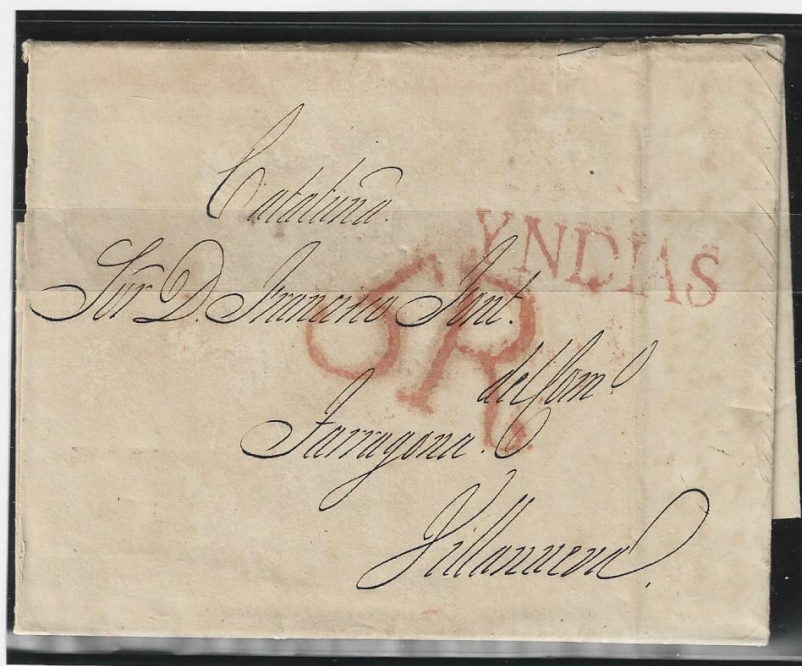 Cataluña.
YNDIAS
Sõr D. Francisco Font.
6R.
del Com.º
Tarragona.
Villanueva.